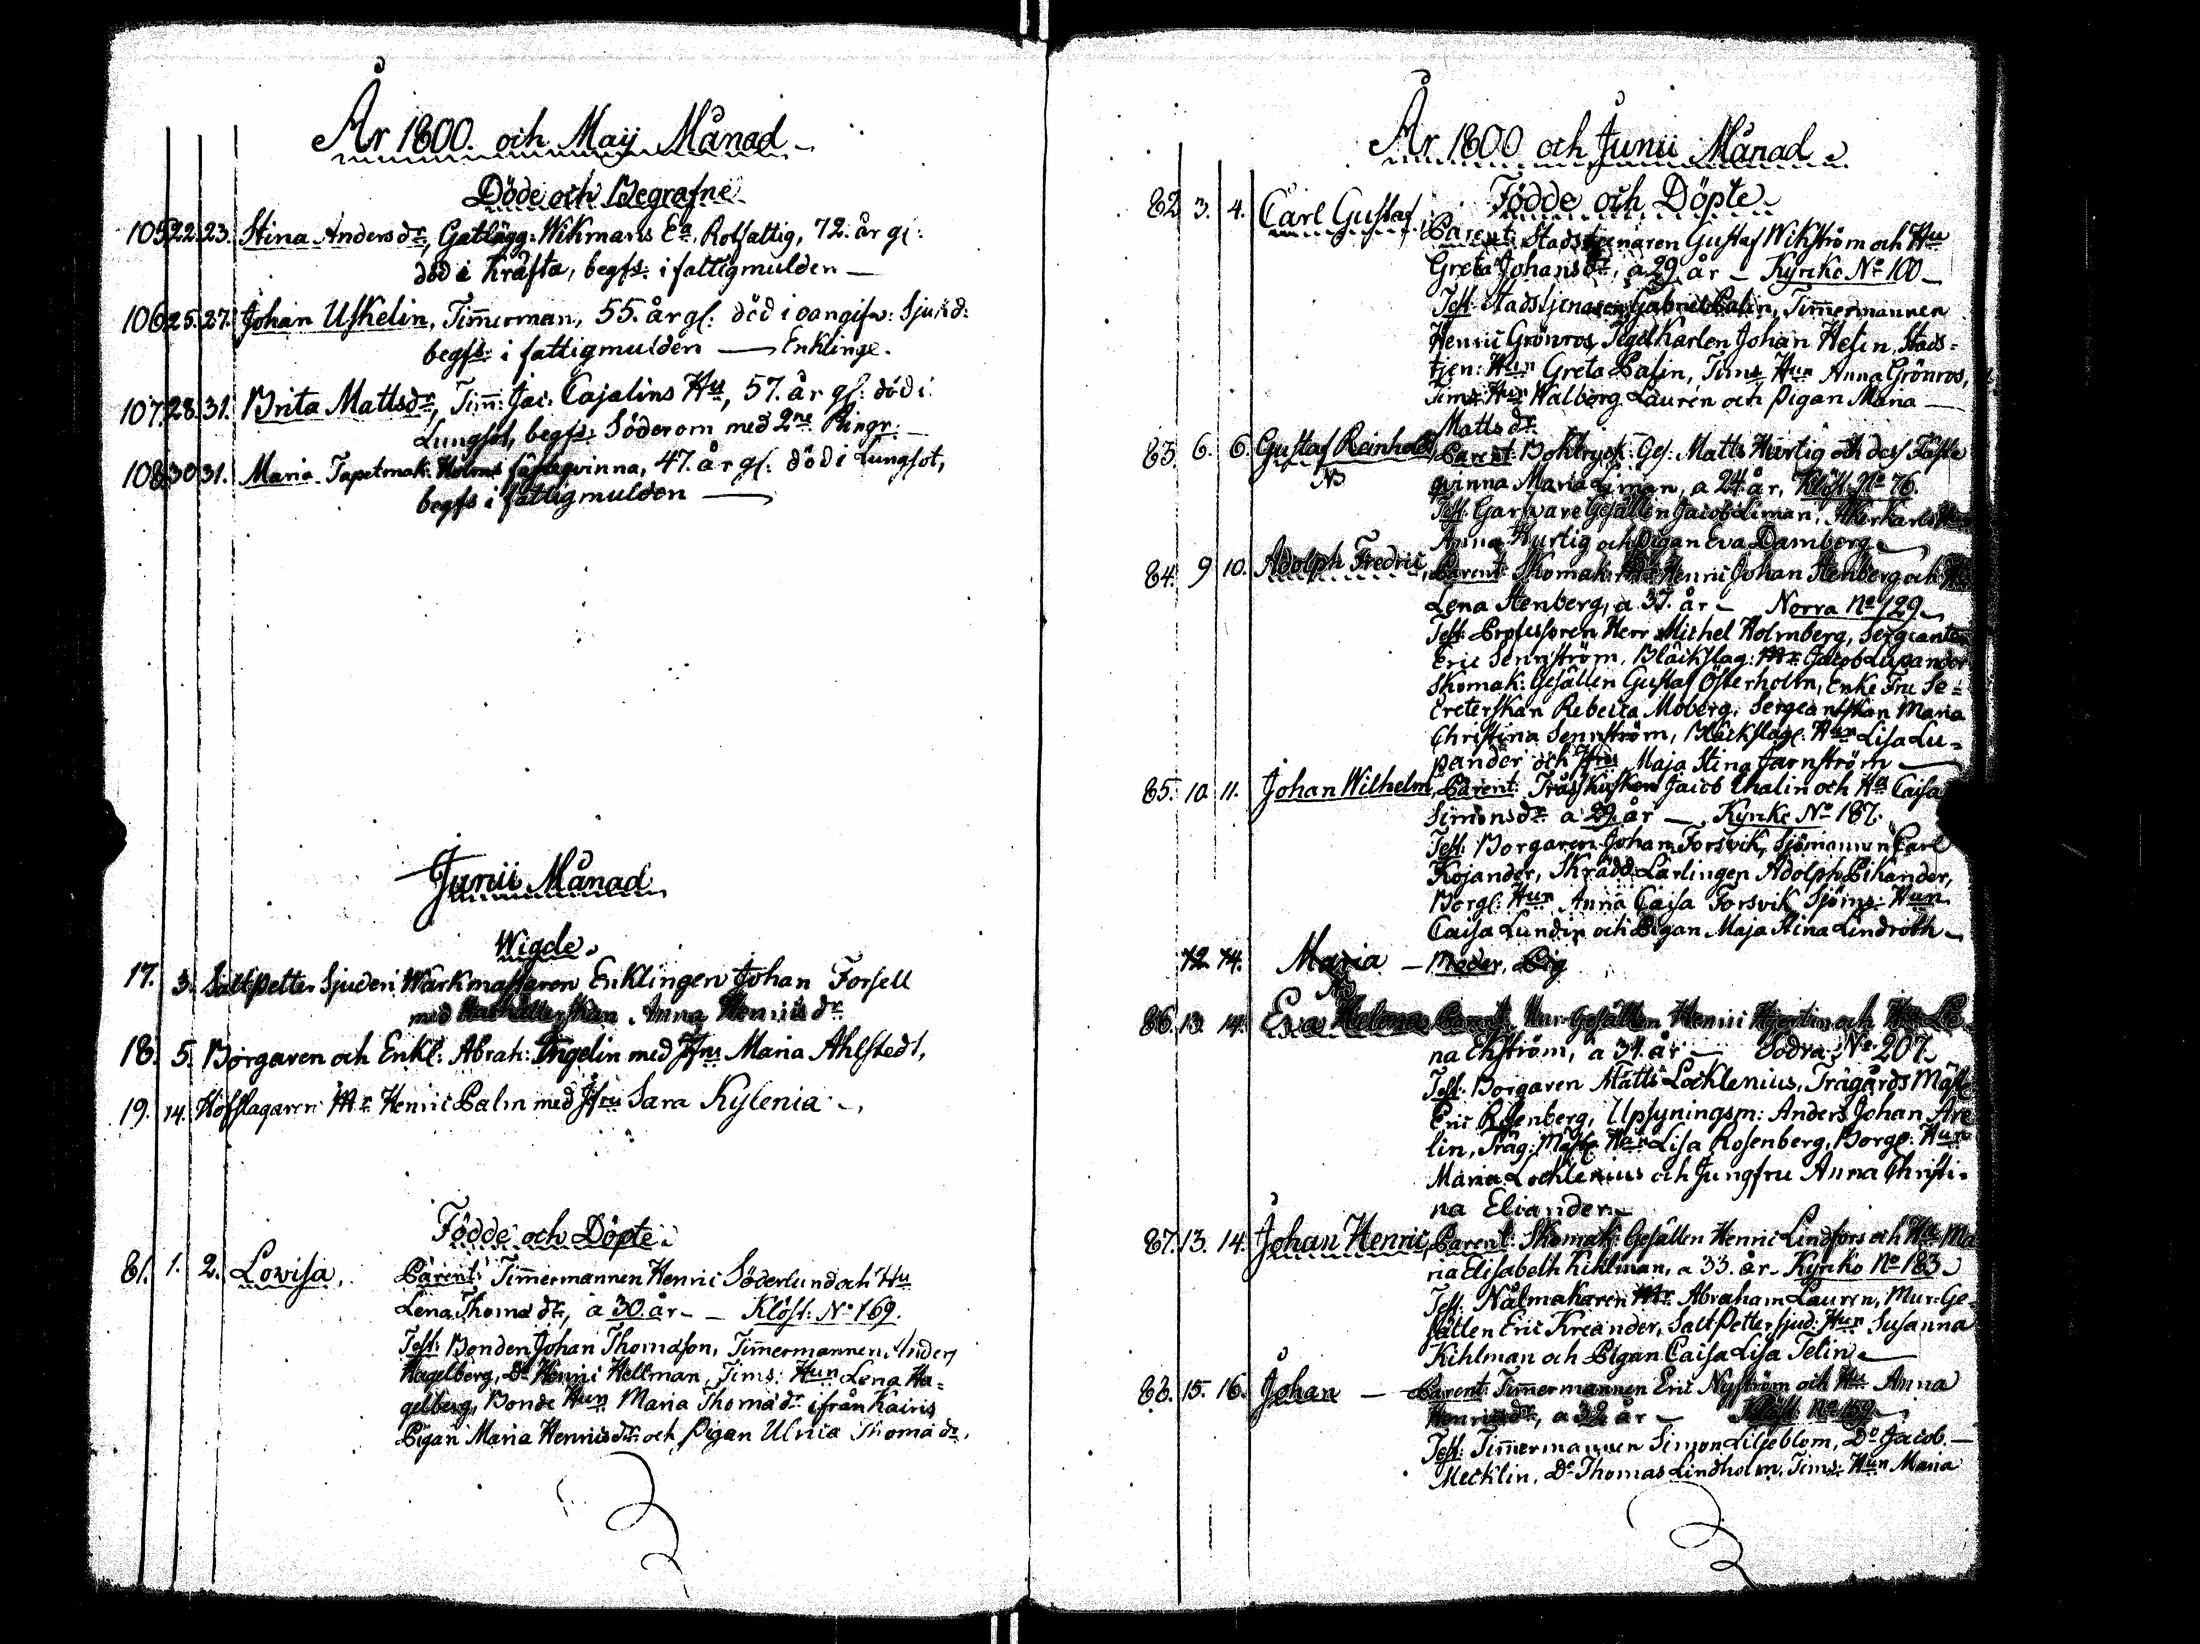 År 1800. och Maij Månad
Döde och Begrafne
105. 22. 23. Stina Andersdr, Gatlägg: Wikmans Ea, Rotfattig, 72. år gl:
död i Kräfta, begfs: i fattigmulden —
106. 25. 27. Johan Uskelin, Timerman, 55. år gl: död i oangifw: Sjukd:
begfs: i fattigmulden — Enklinge.
107. 28. 31. Brita Mattsdr, Tim: Jac: Cajalins Hu, 57. år gl: död i
Lungsot, begfs: Söderom med 2ne Ringr: —
108. 30. 31. Maria Tapetmak: Holms fästeqvinna, 47. år gl: död i Lungsot,
begfs i fattigmulden —
Junii Månad
Wigde.
17. 3. Saltpetter Sjuderi Wärkmästaren Enklingen Johan Forsell
med Hushållerskan Anna Henricsdr
18. 5. Borgaren och Enkl: Abrah: Ingelin med Jfru Maria Ahlstedt,
19. 14. Hofslagaren Mr Henric Palm med Jfru Sara Kylenia —,
Födde och Döpte.
81. 1. 2. Lovisa, Parent: Timermannen Henric Söderlund och Hu
Lena Thomædr, a 30. år — Klöst: No 169.
Test: Bonden Johan Thomasson, Timermannen Anders
Hagelberg, Do Henric Hellman, Tims: Hun Lena Ha=
gelberg, Bonde Hun Maria Thomædr ifrån Kairis
Pigan Maria Henricsdr och Pigan Ulrica Thomædr.
År 1800 och Junii Månad
Födde och Döpte
82. 3. 4. Carl Gustaf, Parent: Stadstjenaren Gustaf Wikström och Hu
Greta Johansdr, a 29. år — Kyrko No 100 —
Test: Stadstjenaren Gabriel Palin, Timermannen
Henric Grönros, Tegelkarlen Johan Helin, Stads=
tjen: Hun Greta Palin, Tims Hun Anna Grönros,
Tims: Hun Walborg Laurén och Pigan Maria —
Mattsdr.
83. 6. 6. Gustaf Reinhold, Parent: Boktryck: Ges: Matts Hurtig och dess Fäste
qvinna Maria Liman, a 24. år, Klöst: No 76.
Test: Garfvare Gesällen Jacob Liman, Åkerkarls Hun
Anna Hurtig och Pigan Eva Damberg —
84. 9 10. Adolph Fredric, Parent: Skomak: Mr Henric Johan Stenberg och Hu
Lena Stenberg, a 37. år — Norra No 129 —
Test: Professoren Herr Michel Holmberg, Sergeanten
Eric Sennström, Bläckslag: Mr Jacob Lupander
Skomak: Gesällen Gustaf Österholm, Enke Fru Se=
creterskan Rebecca Moberg, Sergeantskan Maria
Christina Sennström, Bläckslag: Hun Lisa Lu=
pander och Jfru Maja Stina Jarnström —
85. 10. 11. Johan Wilhelm, Parent: Jacob Thalin och Hu Caisa
Simonsdr a 29. år — Kyrko No 187.
Test: Borgaren Johan Forsvik, Sjömannen Carl
Kojander, Skrädd: Lärlingen Adolph Pikander,
Borg: Hun Anna Caisa Forsvik, Sjöms: Hun
Caisa Lundin och Pigan Maja Stina Lindroth —
12. 14. Maria — Moder, Pig
86. 13. 14. Eva Helena Parent: Mur-Gesällen Henric Hjertin och Hu Le
na Ekström, a 34. år — Södra No 207
Test: Borgaren Matts Lochlenius, Trägårds Mäst:
Eric Rosenberg, Upsyningsm: Anders Johan Are
lin, Träg: Mäst: Hun Lisa Rosenberg, Borg: Hun
Maria Lochlenius och Jungfru Anna Christi=
na Eliander —
87. 13. 14. Johan Henric, Parent: Skomak: Gesällen Henric Lindfors och Hu Ma
ria Elisabeth Kihlman, a 33. år — Kyrko No 183 —
Test: Nålmakaren Mr Abraham Lauren, Mur-Ge=
sällen Eric Kreander, Saltpetter sjud: Hun Susanna
Kihlman och Pigan Caisa Lisa Telin —
88. 15. 16. Johan — Parent: Timermannen Eric Nyström och Hu Anna
Henricsdr, a 32 år — Klöst: No 159
Test: Timermannen Simon Liljeblom, Do Jacob —
Mecklin, Do Thomas Lindholm, Tims: Hun Maria